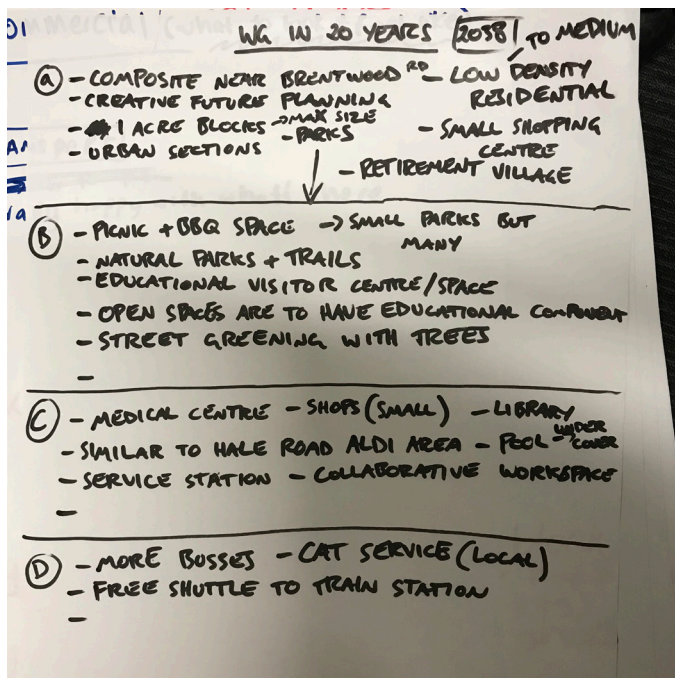 WG IN 20 YEARS 2038 TO MEDIUM
A - COMPOSITE NEAR BRENTWOOD RD - LOW DENSITY RESIDENTIAL
- CREATIVE FUTURE PLANNING
- 1 ACRE BLOCKS → MAX SIZE
- PARKS
- SMALL SHOPPING CENTRE
- URBAN SECTIONS
- RETIREMENT VILLAGE
B - PICNIC + BBQ SPACE → SMALL PARKS BUT MANY
- NATURAL PARKS + TRAILS
- EDUCATIONAL VISITOR CENTRE/SPACE
- OPEN SPACES ARE TO HAVE EDUCATIONAL COMPONENT
- STREET GREENING WITH TREES
-
C - MEDICAL CENTRE - SHOPS (SMALL) - LIBRARY
- SIMILAR TO HALE ROAD ALDI AREA - POOL - UNDER COVER
- SERVICE STATION - COLLABORATIVE WORKSPACE
-
D - MORE BUSSES - CAT SERVICE (LOCAL)
- FREE SHUTTLE TO TRAIN STATION
-